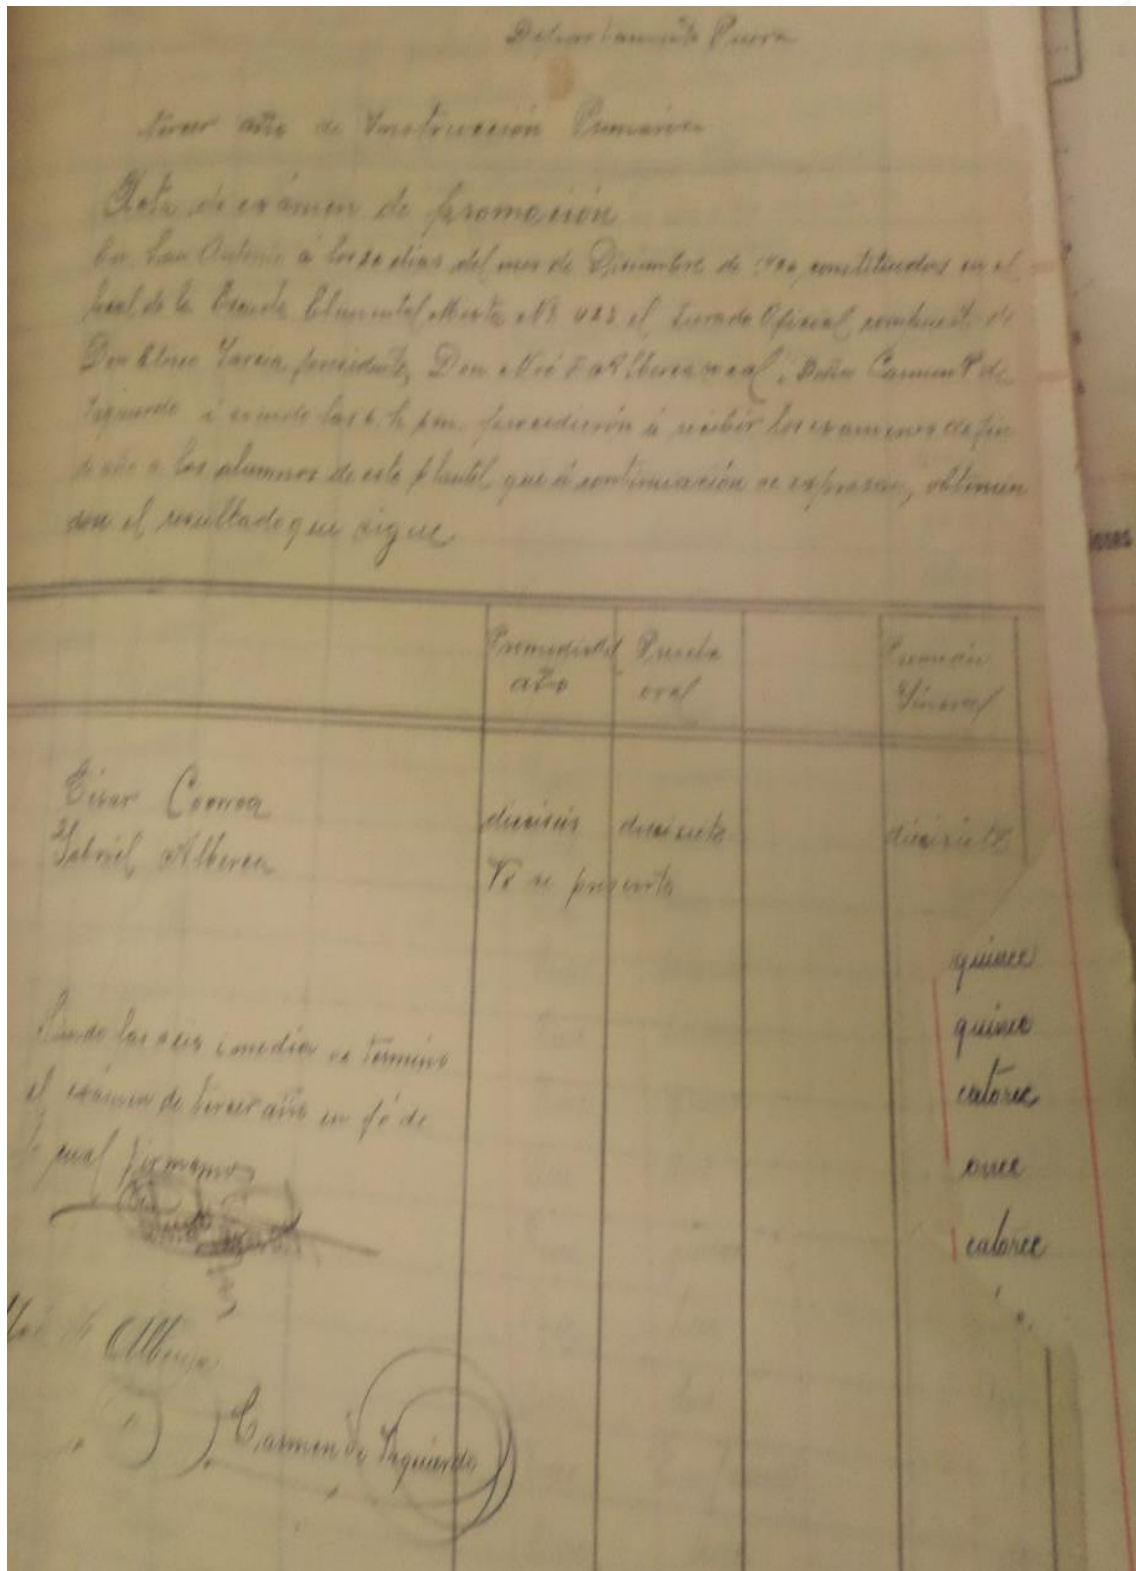 Departamento Piura
tercer año de Instrucción Primaria
Acta de exámen de promoción
En San Antonio á los 20 dias del mes de Diciembre de constituidos en el
local de la Escuela Elemental Mixta Nº 423 el Jurado Oficial compuesto
Don García, presidente, Don Alberca Doña Carmen P de
Izquierdo i siendo las h pm. procedierón á recibir los exámenes de fin
de año a los alumnos de este plantel, que á continuación se expresan, obtenien
don el resultado que sigue
Promedio del año
Prueba oral
Promedio General
César Correa dieciseis diecisiete diecisiete
Gabriel Alberca No se presentó
quince
quince
catorce
once
catorce
Siendo las seis i media se terminó
el exámen de tercer año en fé de
lo cual firmamos
Alberca
Carmen de Izquierdo